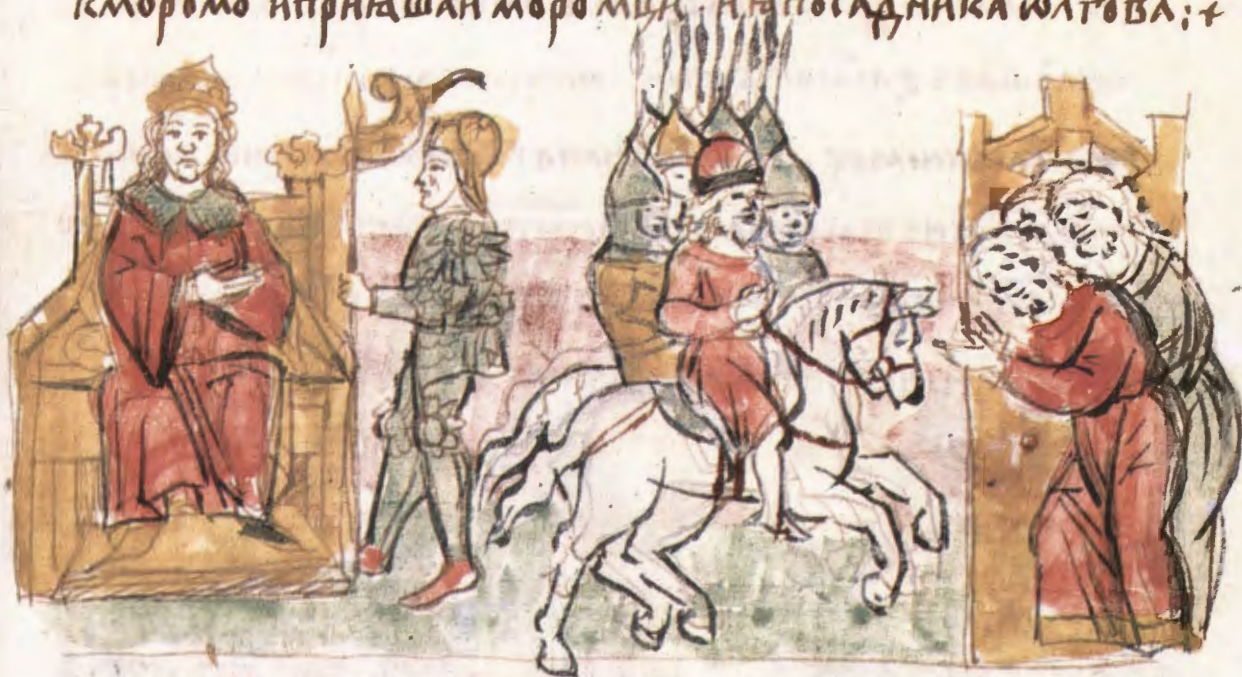 кморомо иприꙗшаи моромци иꙗпосадника ѡлгова:+